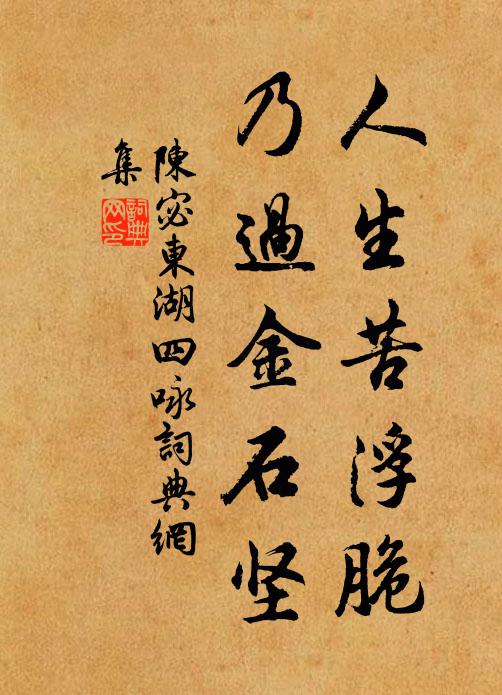 人生苦浮脆
乃過金石坚
陳宓東湖四咏詞典網
集
詞典网印